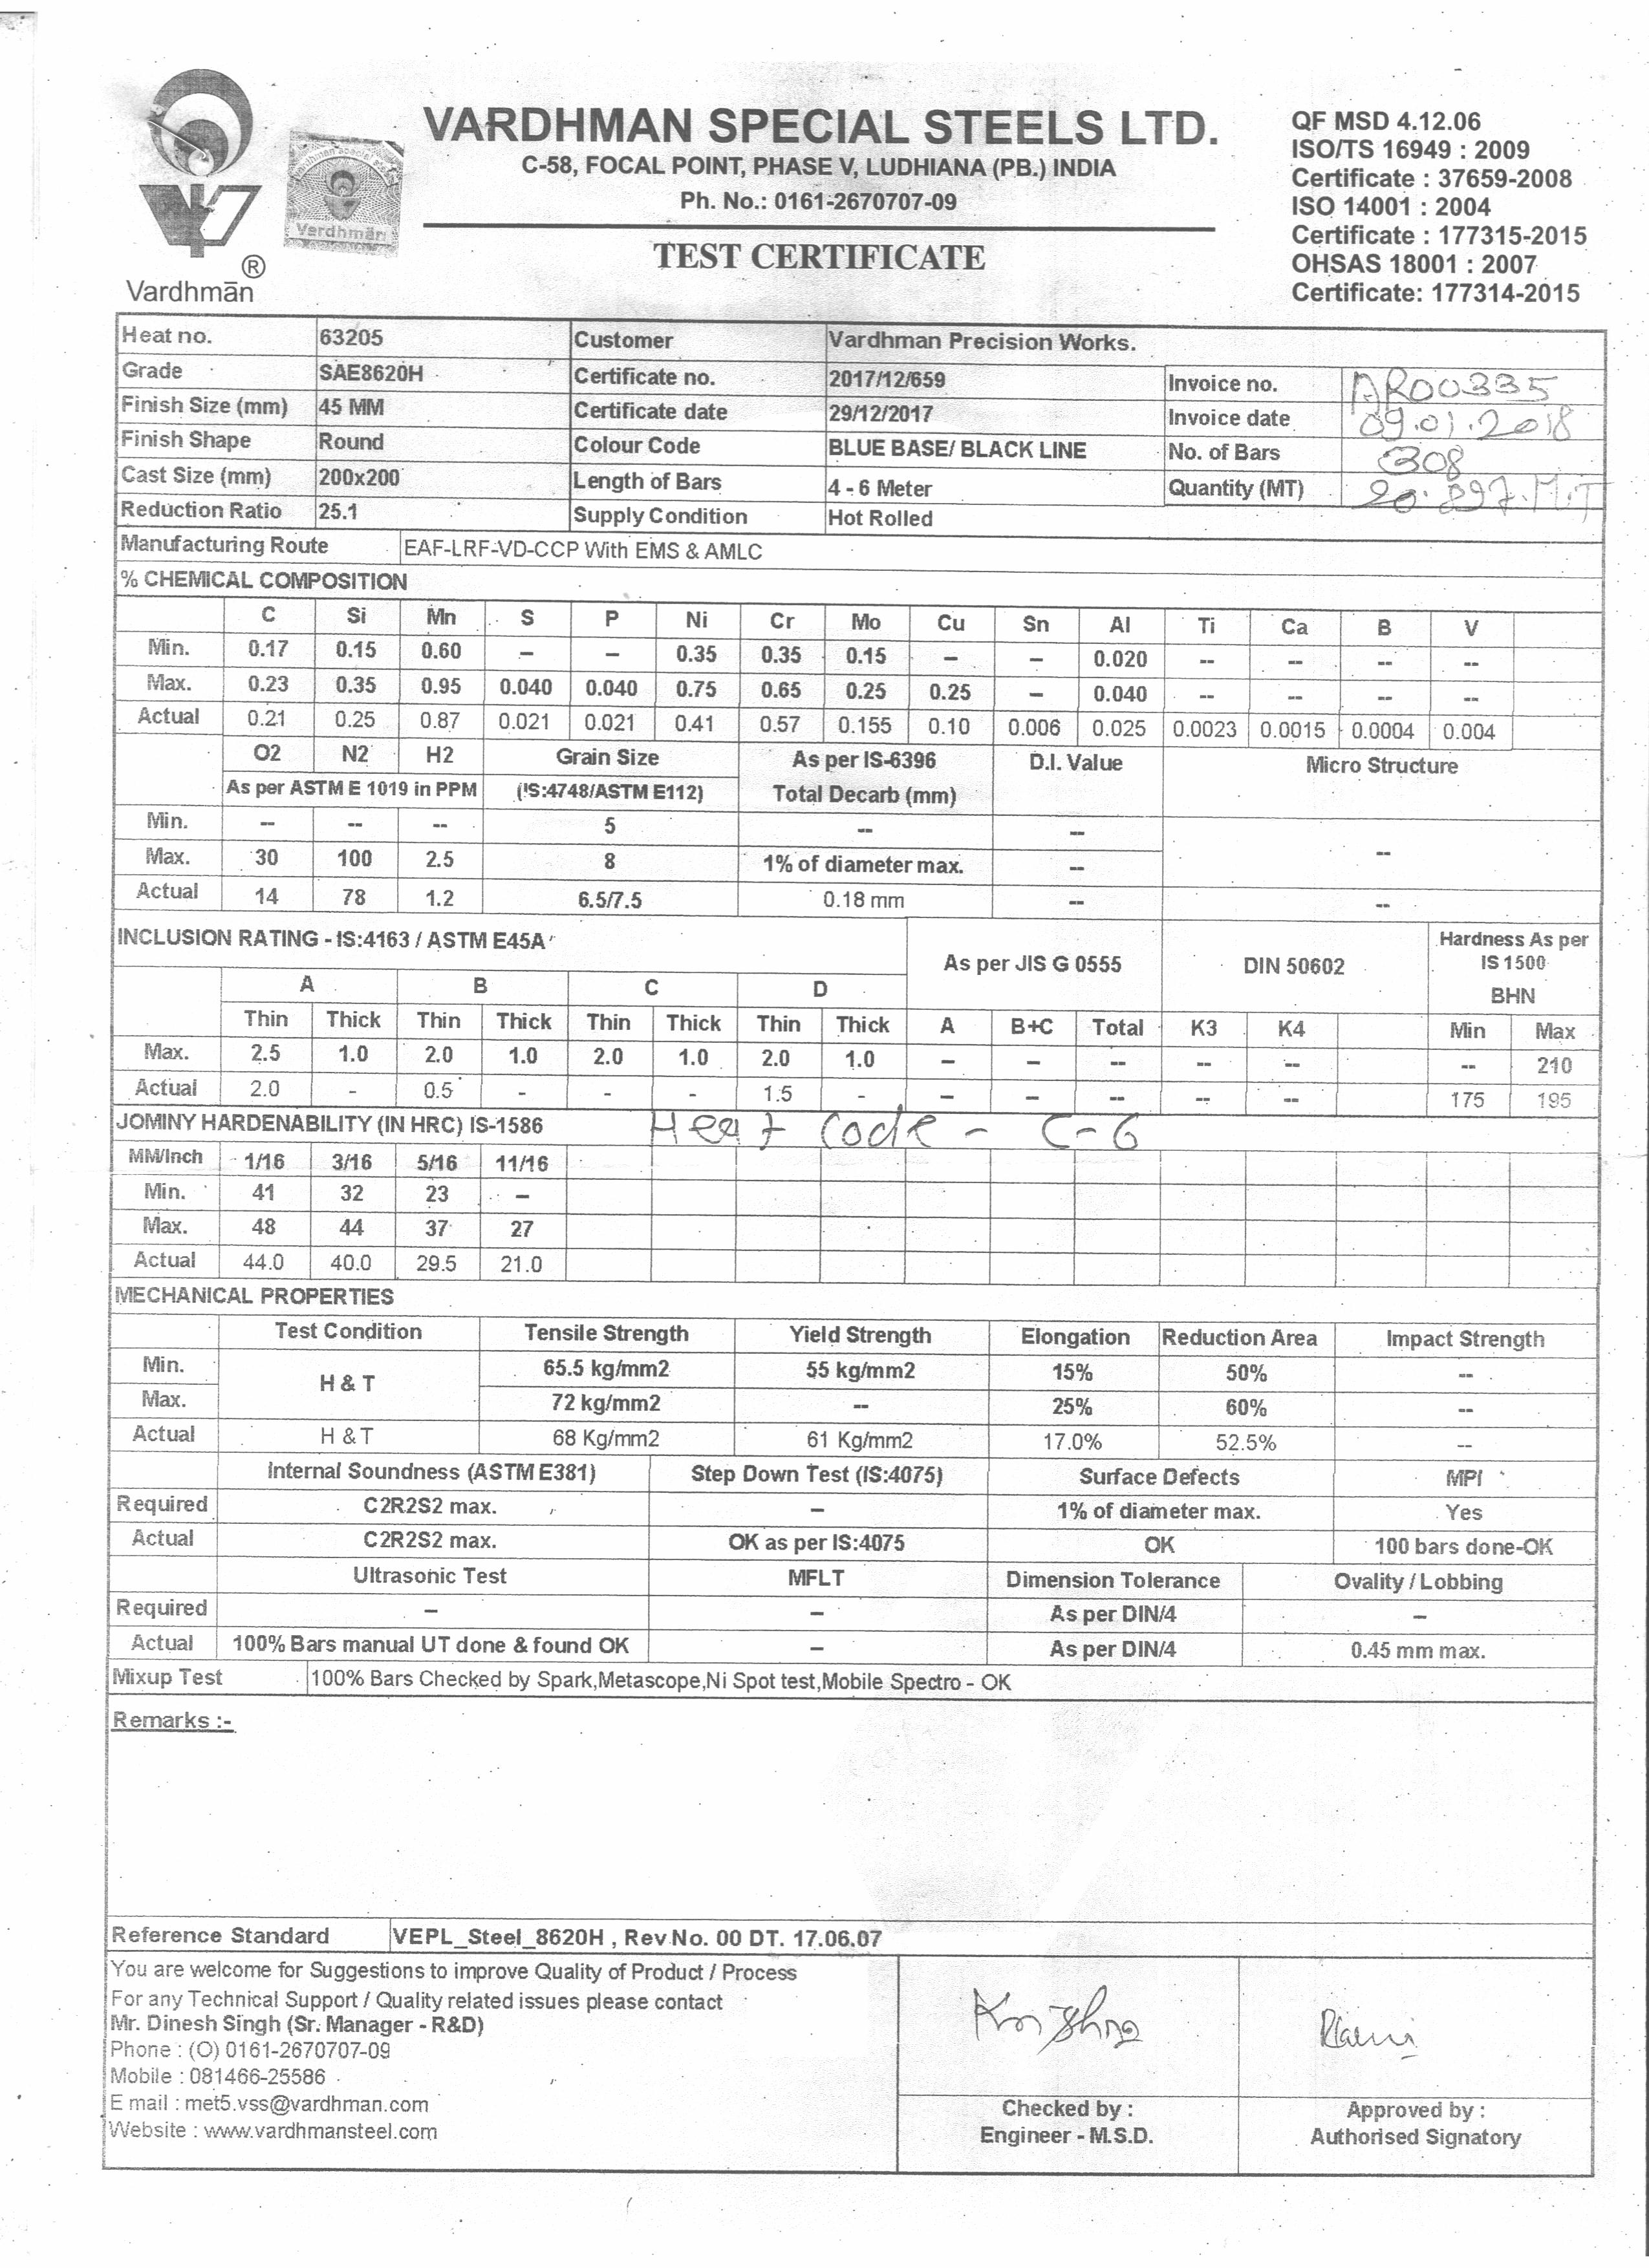 VARDHMAN SPECIAL STEELS LTD.
C-58, FOCAL POINT, PHASE V, LUDHIANA (PB.) INDIA
Ph. No.: 0161-2670707-09
TEST CERTIFICATE
QF MSD 4.12.06
ISO/TS 16949 : 2009
Certificate : 37659-2008
ISO 14001 : 2004
Certificate : 177315-2015
OHSAS 18001 : 2007
Certificate: 177314-2015
Vardhmān
®
Vardhmān
Heat no. 63205 Customer Vardhman Precision Works.
Grade SAE8620H Certificate no. 2017/12/659 Invoice no. AR00335
Finish Size (mm) 45 MM Certificate date 29/12/2017 Invoice date 09.01.2018
Finish Shape Round Colour Code BLUE BASE/ BLACK LINE No. of Bars 308
Cast Size (mm) 200x200 Length of Bars 4 - 6 Meter Quantity (MT) 20.897.M.T
Reduction Ratio 25.1 Supply Condition Hot Rolled
Manufacturing Route EAF-LRF-VD-CCP With EMS & AMLC
% CHEMICAL COMPOSITION
C Si Mn S P Ni Cr Mo Cu Sn Al Ti Ca B V
Min. 0.17 0.15 0.60 – – 0.35 0.35 0.15 – – 0.020 -- -- -- --
Max. 0.23 0.35 0.95 0.040 0.040 0.75 0.65 0.25 0.25 – 0.040 -- -- -- --
Actual 0.21 0.25 0.87 0.021 0.021 0.41 0.57 0.155 0.10 0.006 0.025 0.0023 0.0015 0.0004 0.004
O2 N2 H2 Grain Size As per IS-6396 D.I. Value Micro Structure
As per ASTM E 1019 in PPM (IS:4748/ASTM E112) Total Decarb (mm)
Min. -- -- -- 5 -- --
Max. 30 100 2.5 8 1% of diameter max. -- --
Actual 14 78 1.2 6.5/7.5 0.18 mm -- --
INCLUSION RATING - IS:4163 / ASTM E45A As per JIS G 0555 DIN 50602 Hardness As per
IS 1500
BHN
A B C D
Thin Thick Thin Thick Thin Thick Thin Thick A B+C Total K3 K4 Min Max
Max. 2.5 1.0 2.0 1.0 2.0 1.0 2.0 1.0 – – -- -- -- -- 210
Actual 2.0 - 0.5 - - - 1.5 - – – -- -- -- 175 195
JOMINY HARDENABILITY (IN HRC) IS-1586 Heat Code - C-6
MM/Inch 1/16 3/16 5/16 11/16
Min. 41 32 23 –
Max. 48 44 37 27
Actual 44.0 40.0 29.5 21.0
MECHANICAL PROPERTIES
Test Condition Tensile Strength Yield Strength Elongation Reduction Area Impact Strength
Min. H & T 65.5 kg/mm2 55 kg/mm2 15% 50% --
Max. 72 kg/mm2 -- 25% 60% --
Actual H & T 68 Kg/mm2 61 Kg/mm2 17.0% 52.5% --
Internal Soundness (ASTM E381) Step Down Test (IS:4075) Surface Defects MPI
Required C2R2S2 max. – 1% of diameter max. Yes
Actual C2R2S2 max. OK as per IS:4075 OK 100 bars done-OK
Ultrasonic Test MFLT Dimension Tolerance Ovality / Lobbing
Required – – As per DIN/4 –
Actual 100% Bars manual UT done & found OK – As per DIN/4 0.45 mm max.
Mixup Test 100% Bars Checked by Spark,Metascope,Ni Spot test,Mobile Spectro - OK
Remarks :-
Reference Standard VEPL_Steel_8620H , Rev.No. 00 DT. 17.06.07
You are welcome for Suggestions to improve Quality of Product / Process
For any Technical Support / Quality related issues please contact
Mr. Dinesh Singh (Sr. Manager - R&D)
Phone : (O) 0161-2670707-09
Mobile : 081466-25586
E mail : met5.vss@vardhman.com
Website : www.vardhmansteel.com
Krishna
Checked by :
Engineer - M.S.D.
Approved by :
Authorised Signatory